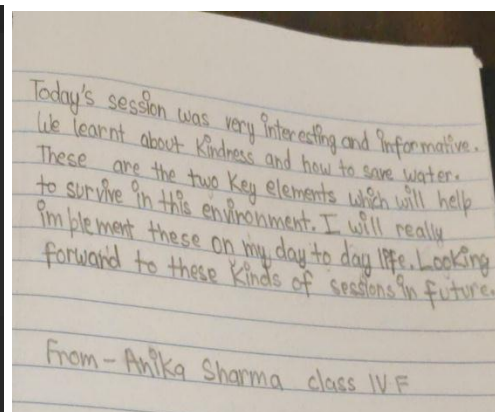 Today's session was very interesting and informative.
We learnt about Kindness and how to save water.
These are the two key elements which will help
to survive in this environment. I will really
implement these on my day to day life. Looking
forward to these kinds of sessions in future.
From - Anika Sharma class IV F